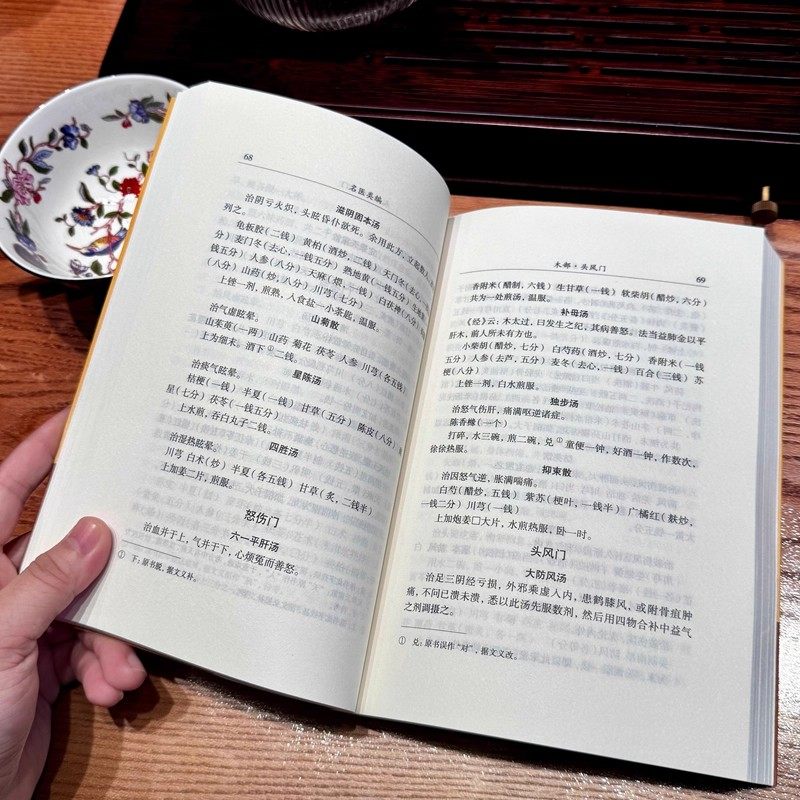 68
名医类编
滋阴固本汤
治阴亏火炽，头眩昏仆欲死。余用此方，立起数人
列之。
龟板胶（二钱） 黄柏（酒炒，二钱） 天门冬（去心，一钱
五分） 麦门冬（去心，一钱五分） 熟地黄（一钱五分）
钱五分） 人参（八分） 天麻（煨，一钱） 白茯神（八分）
（八分） 山药（炒，八分） 川芎（七分）
上锉一剂，煎熟，入食盐一小茶匙，温服。
山菊散
治气虚眩晕。
山茱萸（一两） 山药 菊花 茯苓 人参 川芎（各五钱）
上为细末。酒下①二钱。
星陈汤
治痰气眩晕。
桔梗（一钱） 半夏（一钱） 甘草（五分） 陈皮（八分）
星（七分） 茯苓（一钱五分）
上水煎，吞白丸子二钱。
四胜汤
治湿热眩晕。
川芎 白术（炒） 半夏（各五钱） 甘草（炙，二钱半）
上加姜二片，煎服。
怒伤门
六一平肝汤
治血并于上，气并于下，心烦冤而善怒。
① 下：原书脱，据文义补。
木部·头风门
69
香附米（醋制，六钱） 生甘草（一钱） 软柴胡（醋炒，六分）
共为一处煎汤，温服。
补母汤
《经》云：木太过，曰发生之纪，其病善怒。法当益肺金以平
肝木，前人所未有方也。
小柴胡（醋炒，七分） 白芍药（酒炒，七分） 香附米（一钱
五分） 人参（去芦，五分） 麦冬（去心，一钱） 百合（三钱） 苏
梗（八分）
上锉一剂，白水煎服。
独步汤
治怒气伤肝，痛满呕逆诸症。
陈香橼（一个）
打碎，水三碗，煎二碗，兑①童便一钟，好酒一钟，作数次，
徐徐热服。
抑束散
治因怒气逆，胀满喘痛。
白芍（醋炒，五钱） 紫苏（梗叶，一钱半） 广橘红（麸炒，
一钱二分） 川芎（一钱）
上加炮姜□大片，水煎热服，卧一时。
头风门
大防风汤
治足三阴经亏损，外邪乘虚入内，患鹤膝风，或附骨疽肿
痛，不问已溃未溃，悉以此汤先服数剂，然后用四物合补中益气
之剂调摄之。
① 兑：原书误作“对”，据文义改。